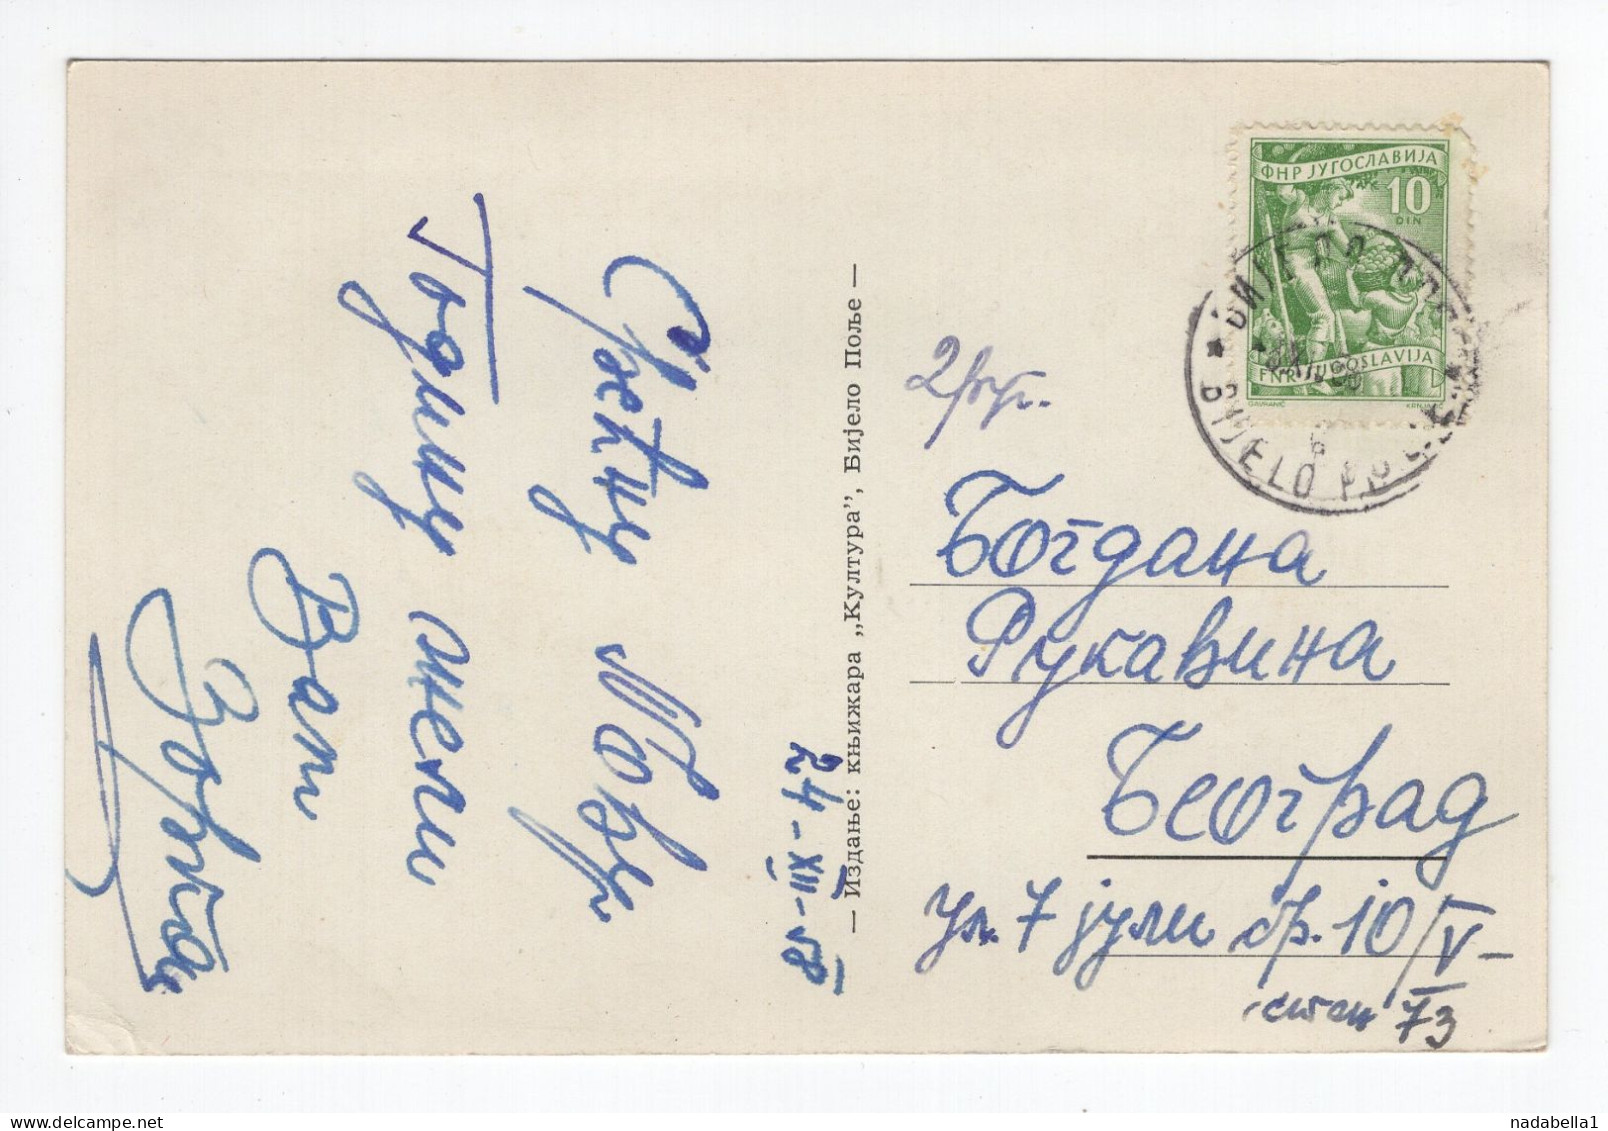 Срећну Нову
Годину жели
Вам
Зорка
24-XII-58
— Издање: књижара „Култура”, Бијело Поље —
ФНР ЈУГОСЛАВИЈА
10
DIN
FNR JUGOSLAVIJA
BIJELO
Богдана
Рукавина
Београд
ул. 7 јули бр. 10/V-
стан 73
nadabella1